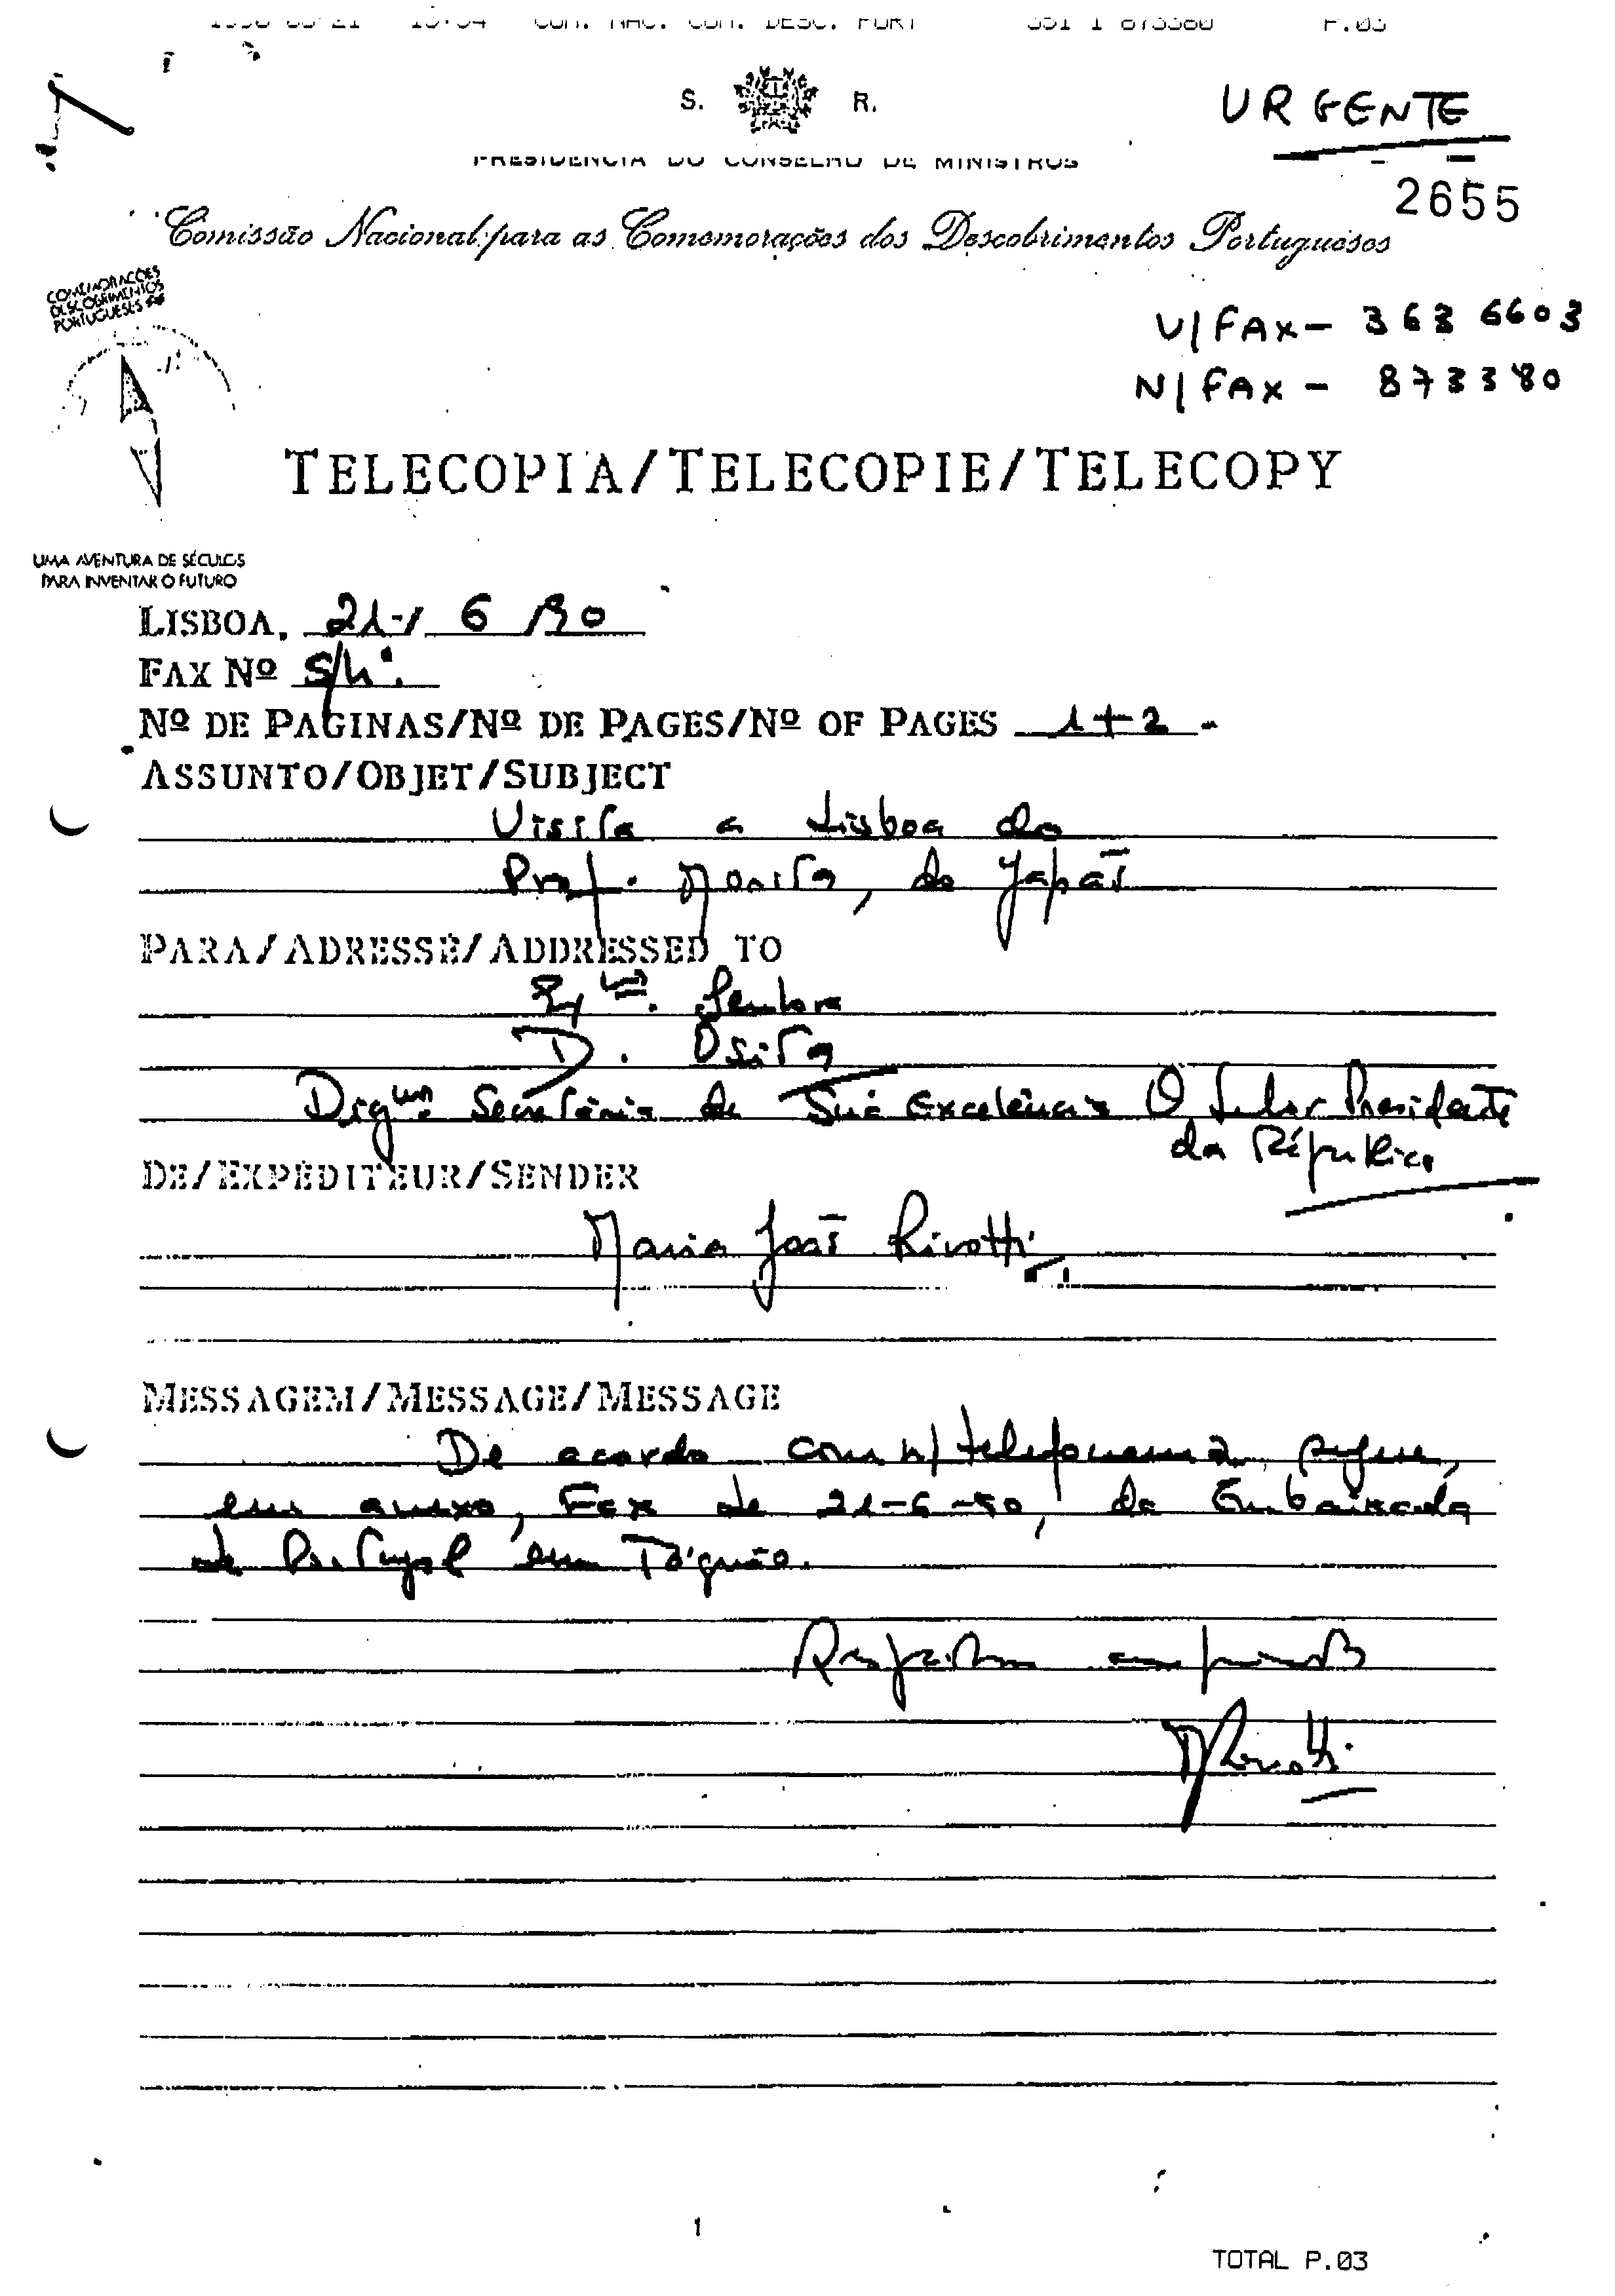 COM. NAC. COM. DESC. PORT 351 1 873380 P.03
S. R.
URGENTE
PRESIDENCIA DO CONSELHO DE MINISTROS
2655
Comissão Nacional para as Comemorações dos Descobrimentos Portugueses
COMEMORAÇÕES
DESCOBRIMENTOS
PORTUGUESES
V/FAX- 363 6603
N/FAX - 873380
TELECOPIA/TELECOPIE/TELECOPY
UMA AVENTURA DE SÉCULOS
PARA INVENTAR O FUTURO
LISBOA, 21-/ 6 /90
FAX Nº S/Nº.
Nº DE PAGINAS/Nº DE PAGES/Nº OF PAGES 1+2-
ASSUNTO/OBJET/SUBJECT
Visita a Lisboa do
Prof. Morita, do Japão
PARA/ADRESSÉ/ADDRESSED TO
Exma. Senhora
D. Osita
Digma. Secretária de Sua Excelência O Senhor Presidente
da República
DE/EXPÉDITEUR/SENDER
Maria João Rivotti
MESSAGEM/MESSAGE/MESSAGE
De acordo com n/ telefonema, segue,
em anexo, Fax de 21-6-90, da Embaixada
de Portugal em Tóquio.
Respeitosos cumprimentos
MRivotti
1
TOTAL P.03